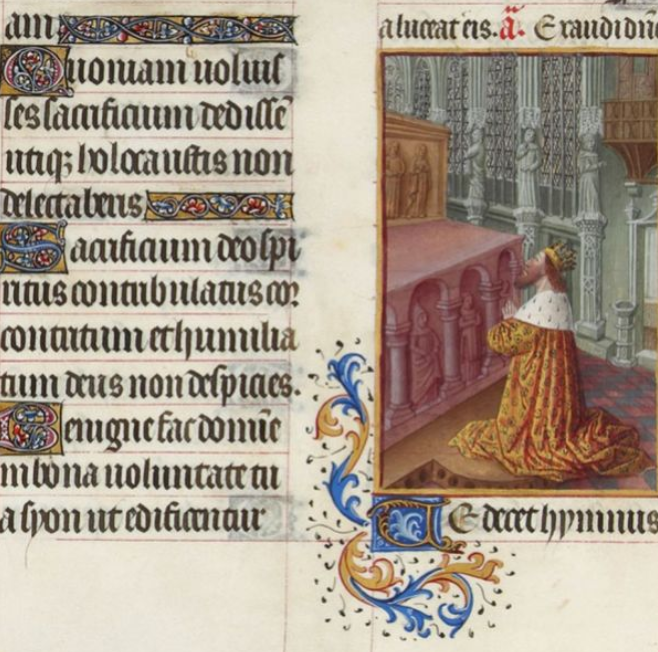 am
Quoniam uoluis
ses sacrificium dedissē
utiqꝫ holocaustis non
delectaberis
Sacrificium deo spi
ritus contribulatus cor
contritum et humilia
tum deus non despicies.
Benigne fac domīe
in bona uoluntate tu
a syon ut edificentur
a luceat eis. a̅. Exaudi dn̄e
Te decet hymnus